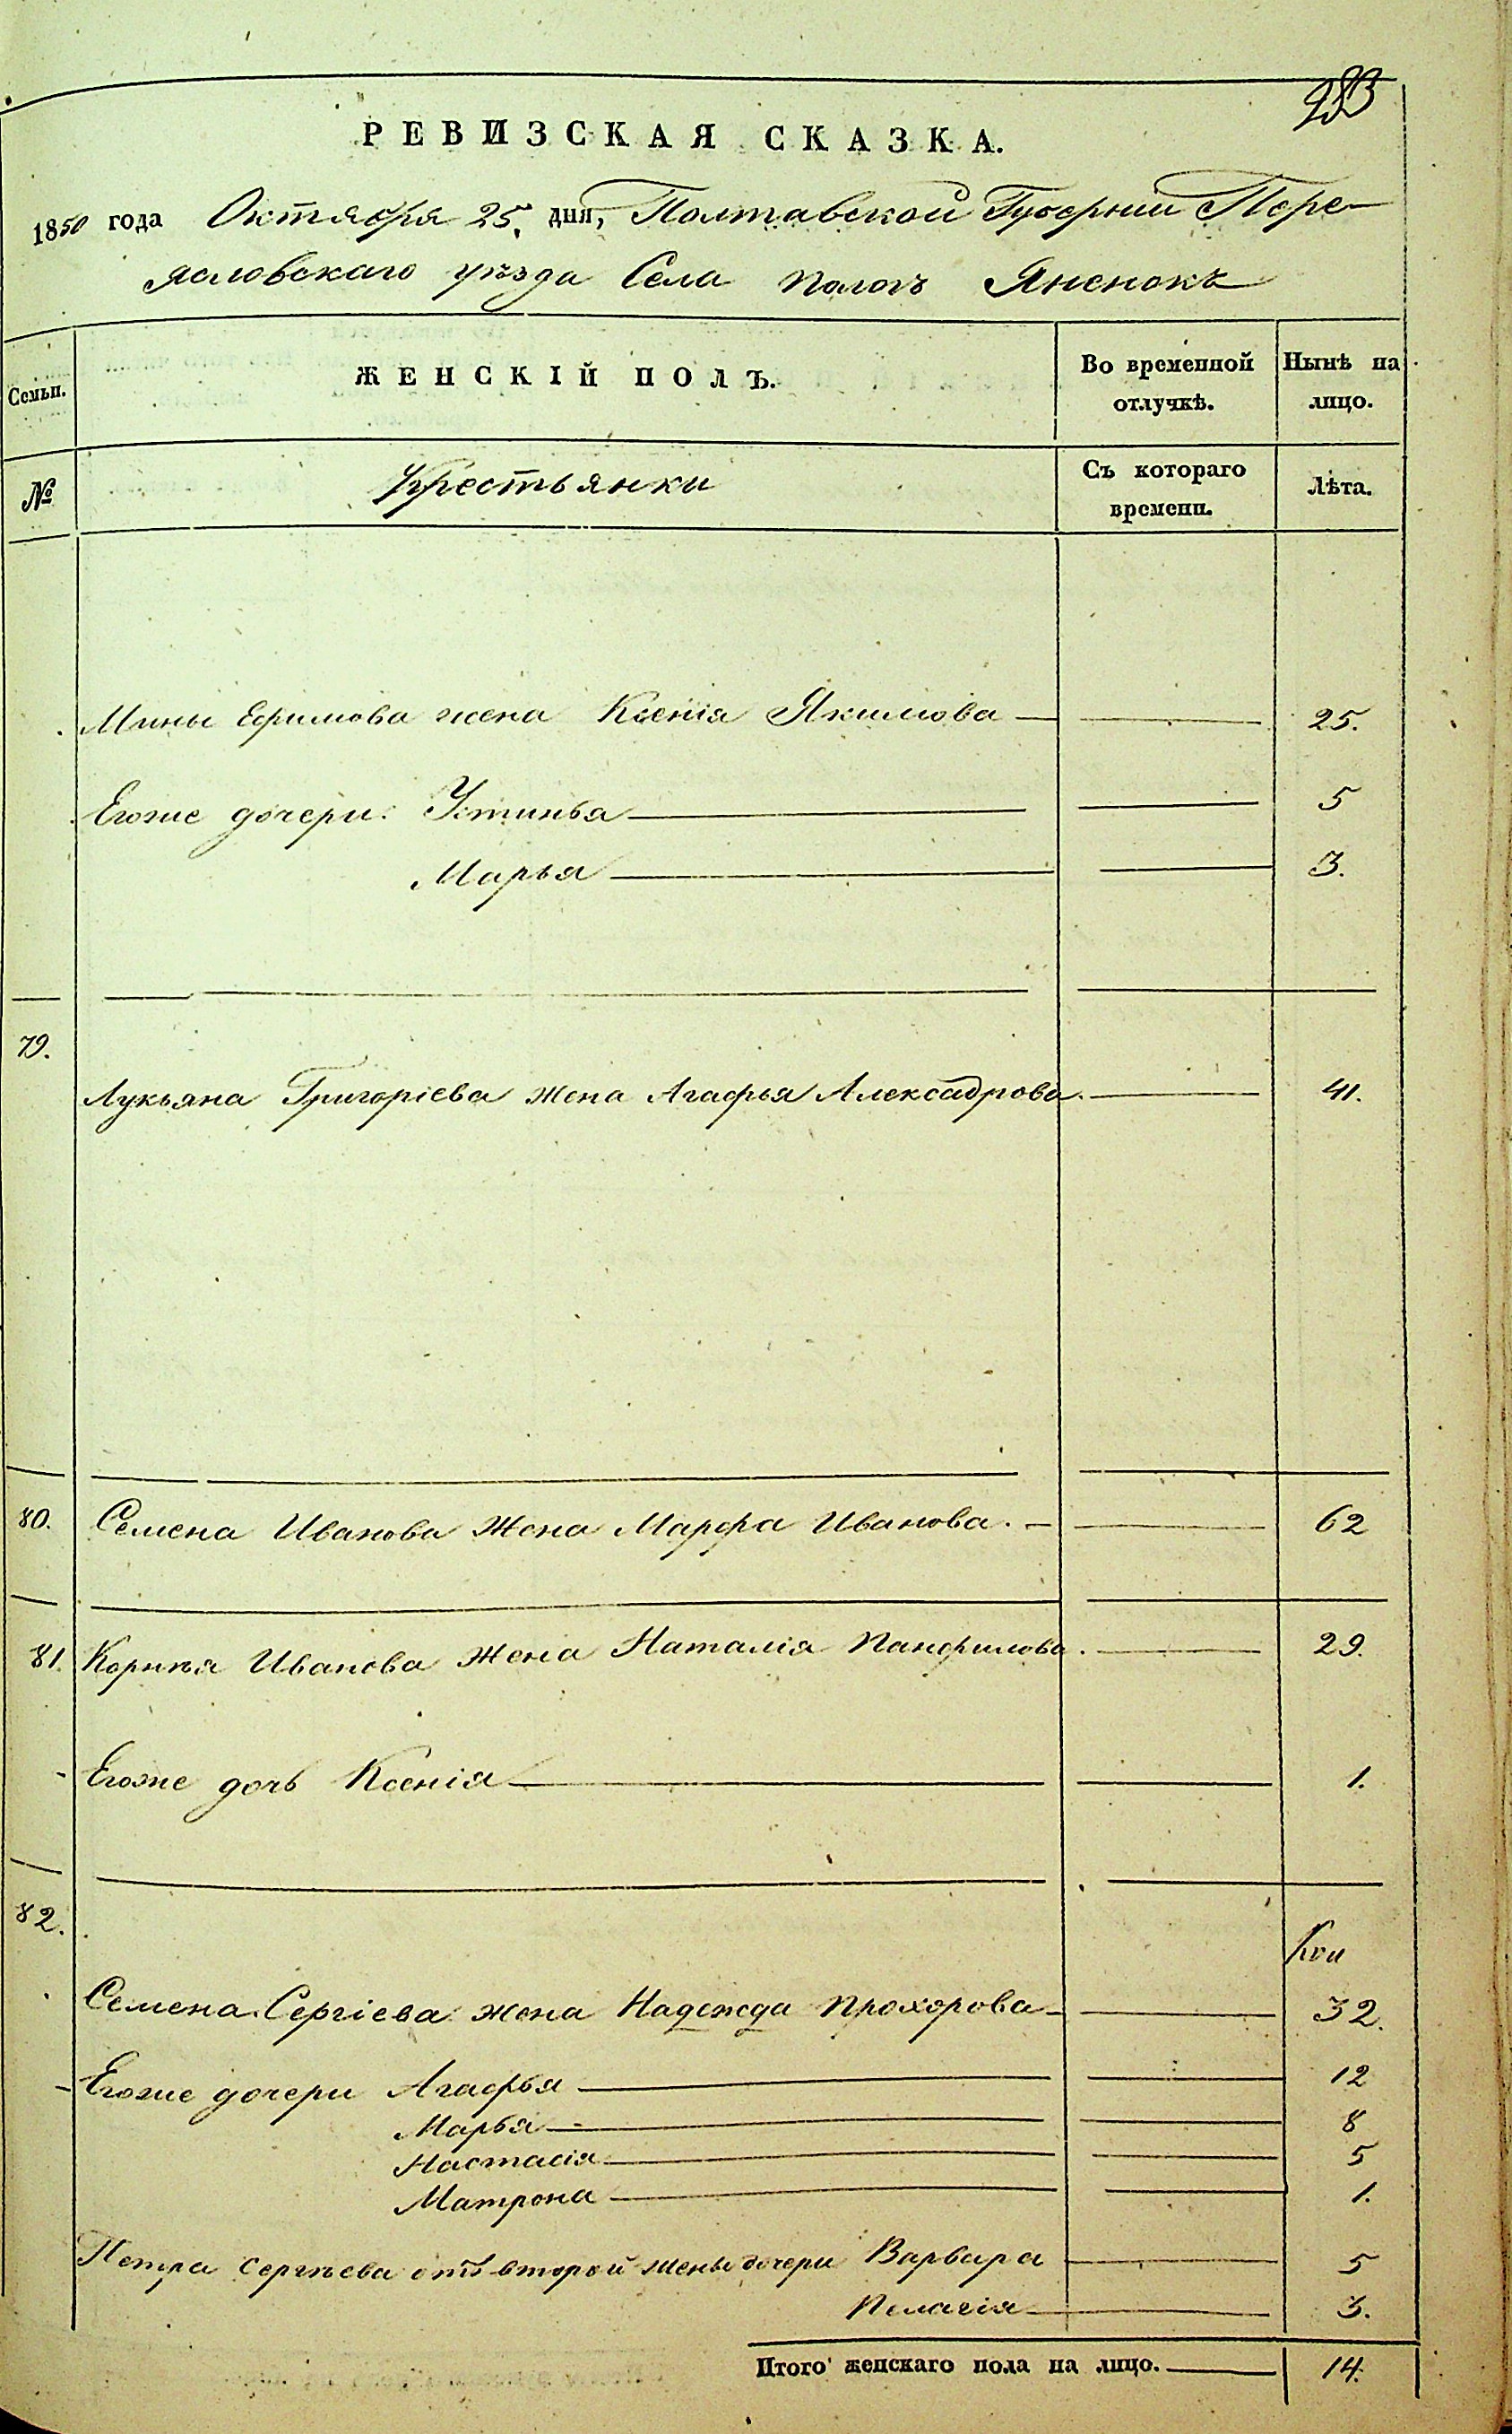 283
РЕВИЗСКАЯ СКАЗКА.
1850 года Октября 25. дня, Полтавской Губернии Пере-
ясловскаго уѣзда Села Пологъ Яненокъ
Семьи. ЖЕНСКІЙ ПОЛЪ. Во временной отлучкѣ. Нынѣ на лицо.
№ Крестьянки Съ котораго времени. Лѣта.
Мины Ефимова жена Ксенія Якимова 25.
Егоже дочери: Устинья 5
Марья 3.
79.
Лукьяна Григоріева жена Агафья Алексадрова. 41.
80. Семена Иванова жена Марфа Иванова. 62
81. Корнѣя Иванова жена Наталія Панфилова. 29.
Егоже дочь Ксенія 1.
82.
Семена Сергіева жена Надежда Прохорова 32.
Егоже дочери Агафья 12
Марья 8
Настасія 5
Матрона 1.
Петра Сергѣева отъ второй жены дочери Варвара 5
Пелагія 3.
Итого женскаго пола на лицо. 14.